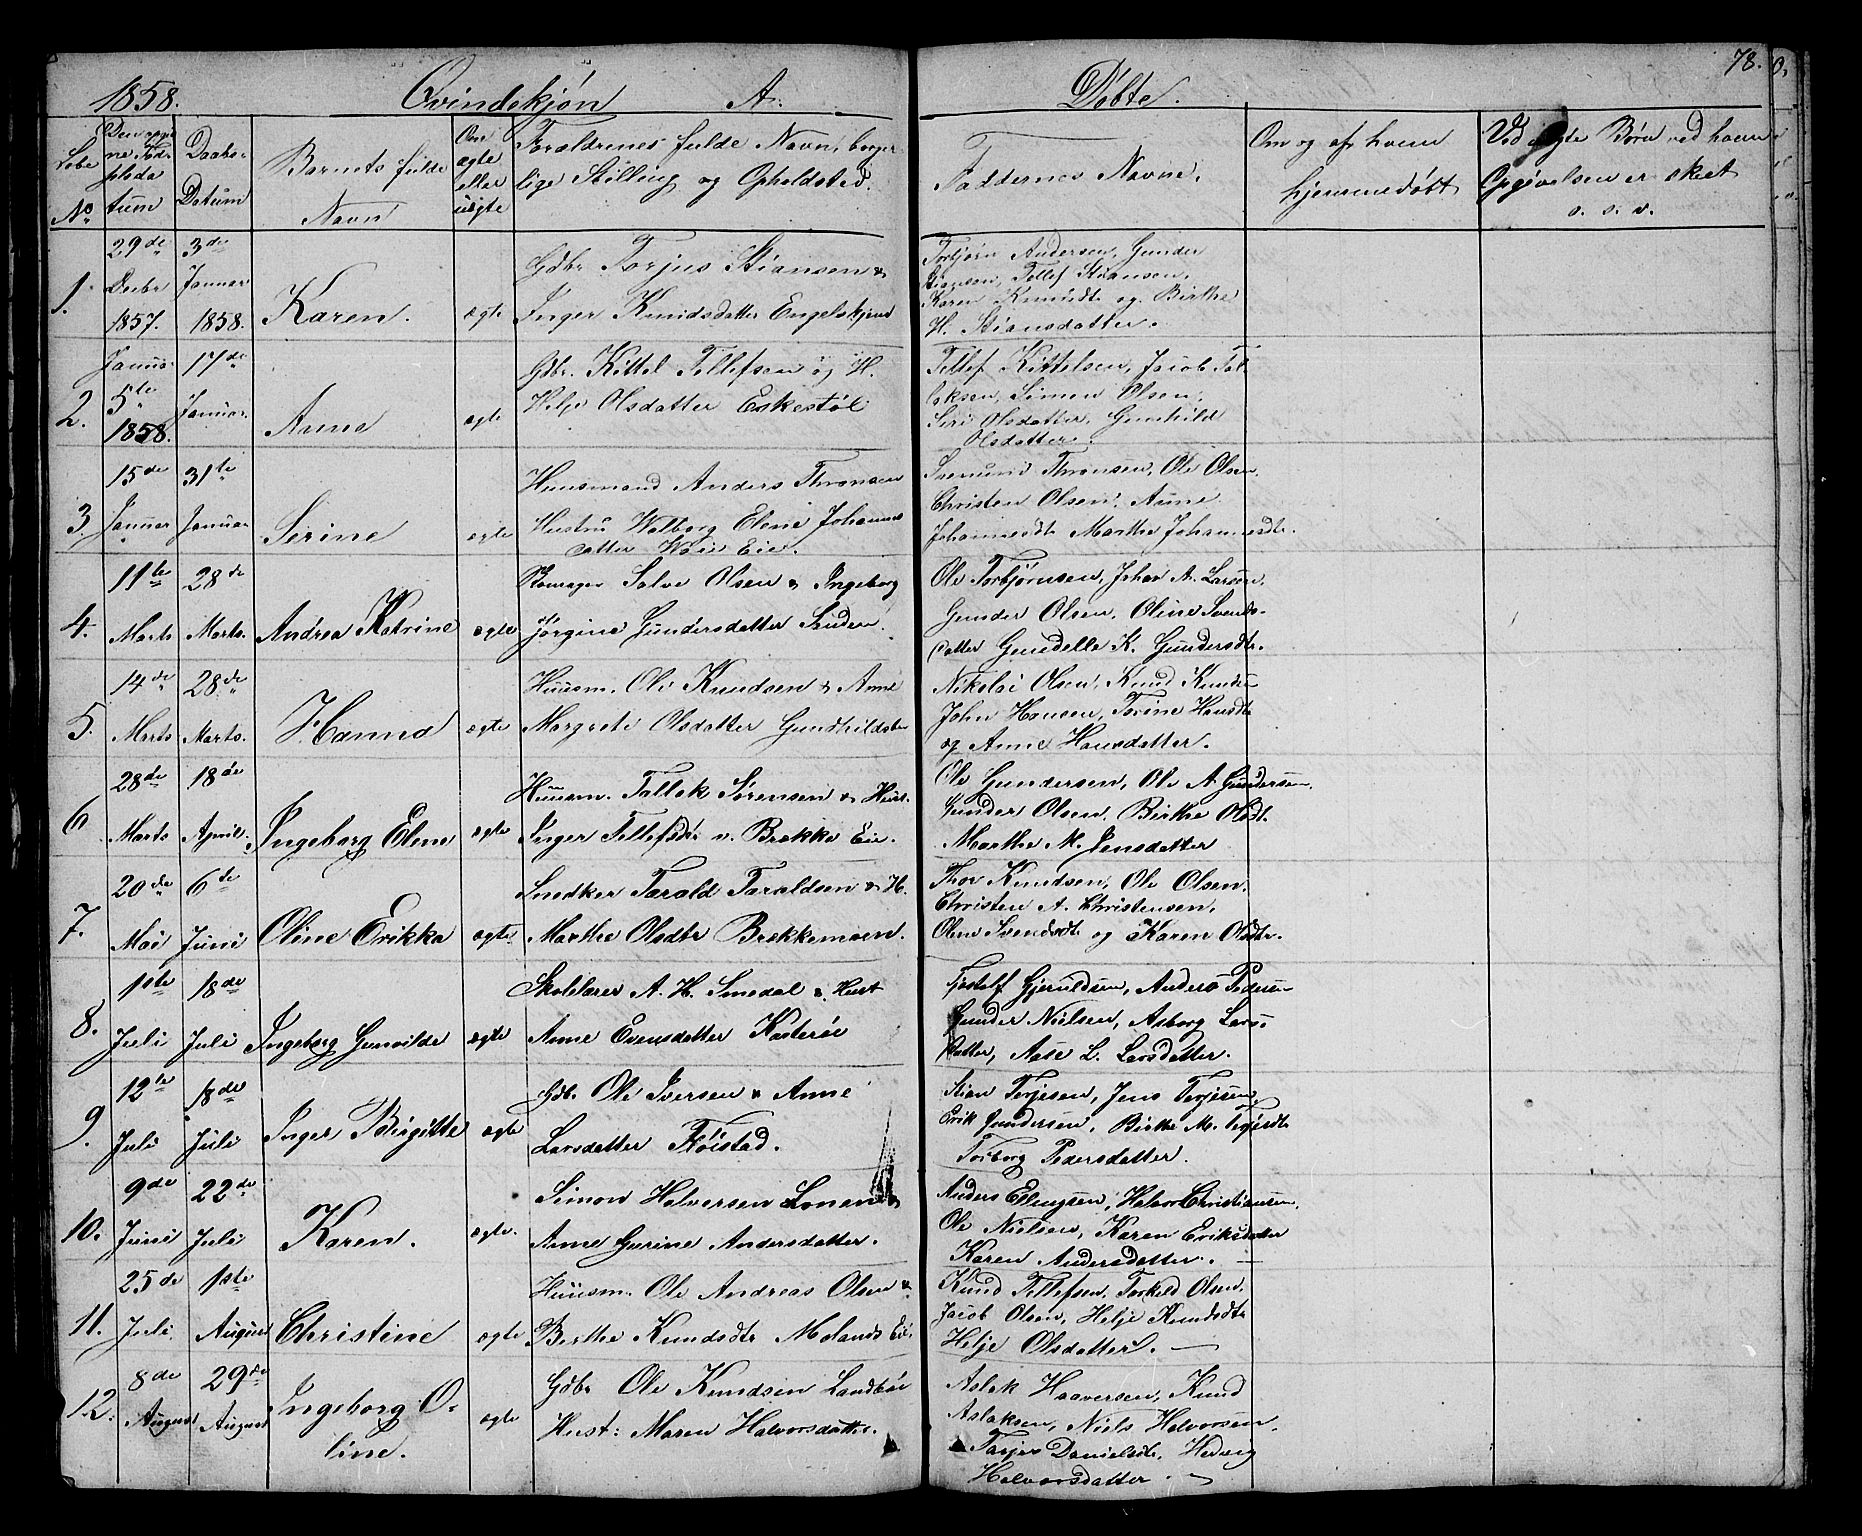 78.
1858. Qvindekjøn A. Døbte.
Løbe No. Den opgivne Fødselsdatum Daabs-Datum Barnets fulde Navn Om ægte eller uægte Forældrenes fulde Navn, borgerlige Stilling og Opholdsted. Faddernes Navne. Om og af hvem hjemmedøbt Ved uægte Børn ved hvem Opgivelsen er skeet o. s. v.
1. 29de Decbr 1857. 3de Januar 1858. Karen. ægte
Gdbr Torjus Stiansen &
Inger Knudsdatter Engelskjøn
Torbjørn Andersen, Gunder
Stiansen, Tellef Stiansen,
Karen Knudsdt og Birthe
H. Stiansdatter.
2. Januar 5te 1858. 17de Januar. Anne ægte
Gdbr. Kittel Tellefsen og H.
Helje Olsdatter Eskestøl
Tellef Kittelsen, Jacob Tal
leksen, Simon Olsen,
Siri Olsdatter, Gunhild
Olsdatter.
3. 15de Januar 31te Januar Serine ægte
Huusmand Anders Thronsen
Hustru Walborg Elene Johannes
datter Eie.
Thronsen, Ole Olsen
Christen Olsen, Anne
Johannesdt Marthe Johannesdt.
4. 11te Marts 28de Marts. Andrea Katrine ægte
Salve Olsen & Ingeborg
Jørgine Gundersdatter Sanden.
Ole Torbjørnsen, Johan A. Larsen,
Gunder Olsen, Oline Svends-
datter Gundelle K. Gundersdtr.
5. 14de Marts 28de Marts. Hanna ægte
Huusm. Ole Knudsen & Anne
Margrete Olsdatter
Nikolai Olsen, Knud Knudsen
John Hansen, Torine Hansdt
og Anne Hansdatter.
6 28de Marts 18de April. Ingeborg Elene ægte
Huusm. Tallak Sørensen & Hust.
Inger Tellefsdtr v. Brekke Eie.
Ole Gundersen, Ole A. Gundersen,
Gunder Olsen, Birthe Olsdt.
Marthe M. Jensdatter
7. 20de Mai 6de Juni Oline Erikka ægte
Snedker Tarald Taraldsen & H.
Marthe Olsdtr Brekkemoen.
Thor Knudsen, Ole Olsen,
Christen A. Christensen,
Olene Svendsdt og Karen Olsdtr.
8. 1ste Juli 18de Juli Ingeborg Gunvilde ægte
Skolelærer A. H. Smedal & Hust
Anne Evensdatter
Tjøstolf Gjeruldsen, Anders Pedersen
Gunder Nielsen, Asborg Lars-
datter, Aase L. Larsdatter.
9. 12te Juli 18de Juli Inger Birgitte ægte
Gdbr. Ole Iversen & Anne
Larsdatter Fløistad.
Stian Terjesen, Jens Terjesen,
Erik Gundersen, Birthe M.
Torborg Pedersdatter.
10. 9de Juni 22de Juli Karen. ægte.
Simon Halvorsen Lonen &
Anne Gurine Andersdatter.
Anders Ellingsen, Halvor Christiansen,
Ole Nielsen, Karen Eriksdatter
Karen Andersdatter. —
11. 25de Juli. 1ste August Christine ægte
Huusm. Ole Andreas Olsen &
Berthe Knudsdtr Molands Eie,
Knud Tellefsen, Torkild Olsen,
Jacob Olsen, Helje Knudsdtr
Helje Olsdatter. —
12. 8de August 29de August Ingeborg O-
line. ægte
Gdbr Ole Knudsen Landbøe
Hust: Maren Halvorsdatter.
Aslak Haaversen, Knud
Aslaksen, Niels Halvorsen,
Danielsdt, Hedvig
Halvorsdatter. —